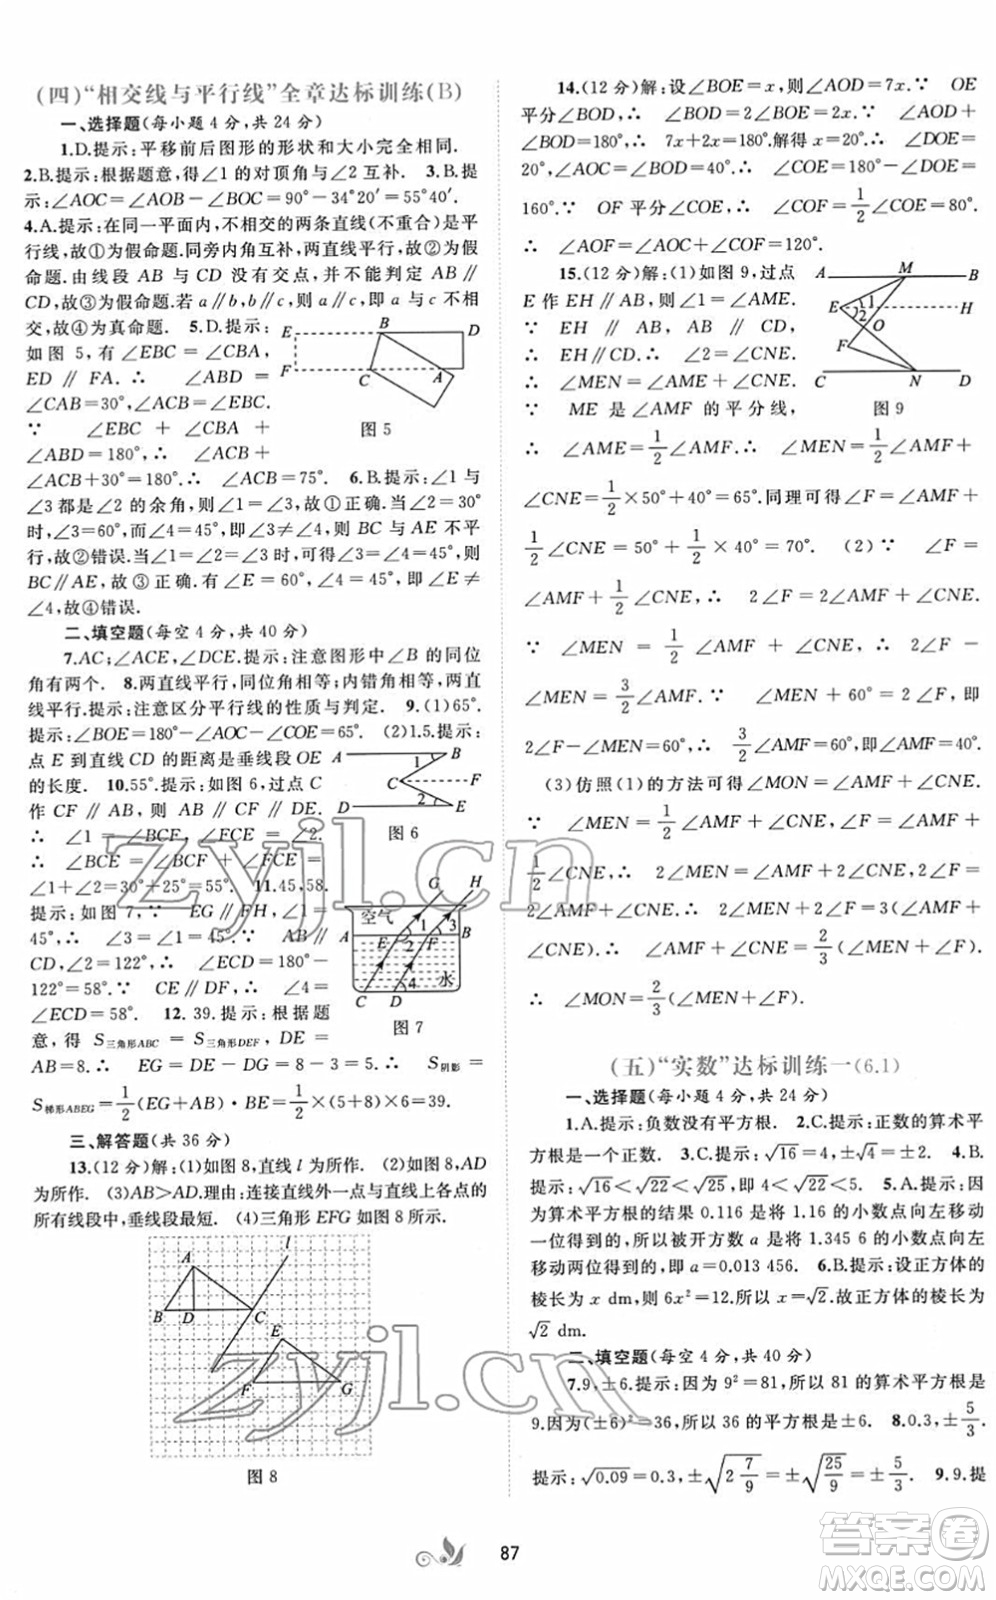 (四)“相交线与平行线”全章达标训练(B)
一、选择题(每小题 4 分,共 24 分)
1.D.提示:平移前后图形的形状和大小完全相同.
2.B.提示:根据题意,得∠1 的对顶角与∠2 互补. 3.B.提
示:∠AOC=∠AOB-∠BOC=90°-34°20′=55°40′.
4.A.提示:在同一平面内,不相交的两条直线(不重合)是平
行线,故①为假命题.同旁内角互补,两直线平行,故②为假
命题.由线段 AB 与 CD 没有交点,并不能判定 AB∥
CD,故③为假命题.若 a∥b,b∥c,则 a∥c,即 a 与 c 不相
交,故④为真命题. 5.D.提示:
如图 5,有∠EBC=∠CBA,
ED ∥ FA.∴ ∠ABD =
∠CAB=30°,∠ACB=∠EBC.
∵ ∠EBC + ∠CBA +
∠ABD=180°,∴ ∠ACB+
∠ACB+30°=180°.∴ ∠ACB=75°. 6.B.提示:∠1 与
∠3 都是∠2 的余角,则∠1=∠3,故①正确.当∠2=30°
时,∠3=60°,而∠4=45°,即∠3≠∠4,则 BC 与 AE 不平
行,故②错误.当∠1=∠2=∠3=45°时,∠3=∠4,则
BC∥AE,故③正确.∵ ∠E=60°,∠4=45°,即∠E≠
∠4,故④错误.
E B D
F C A
图 5
二、填空题(每空 4 分,共 40 分)
7.AC;∠ACE,∠DCE.提示:注意图形中∠B 的同位
角有两个. 8.两直线平行,同位角相等;内错角相等,两直
线平行.提示:注意区分平行线的性质与判定. 9.(1)65°.
提示:∠BOE=180°-∠AOC-∠COE=65°. (2)1.5.提示:
点 E 到直线 CD 的距离是垂线段 OE
的长度. 10.55°.提示:如图 6,过点 C
作 CF ∥ AB,则 AB ∥ CF ∥ DE.
∴ ∠1 = ∠BCF, ∠FCE = ∠2.
∴ ∠BCE = ∠BCF + ∠FCE =
∠1+∠2=30°+25°=55°. 11.45,58.
提示:如图 7,∵ EG∥FH,∠1=
45°,∴ ∠3=∠1=45°.∵ AB∥
CD,∠2=122°,∴ ∠ECD=180°-
122°=58°.∵ CE∥DF,∴ ∠4=
∠ECD=58°. 12. 39.提示:根据题
意,得 S三角形ABC = S三角形DEF, DE =
AB=8.∴ EG=DE-DG=8-3=5.∴ S阴影=
S梯形ABEG=1/2(EG+AB)·BE=1/2×(5+8)×6=39.
A B
1
C F
2
D E
图 6
G H
空气
A 1 3 B
E 2 F
4 水
C D
图 7
三、解答题(共 36 分)
13.(12 分)解:(1)如图 8,直线 l 为所作. (2)如图 8,AD
为所作. (3)AB>AD.理由:连接直线外一点与直线上各点的
所有线段中,垂线段最短. (4)三角形 EFG 如图 8 所示.
l
A
B D C
E
F G
图 8
14.(12 分)解:设∠BOE=x,则∠AOD=7x.∵ OE
平分∠BOD,∴ ∠BOD=2∠BOE=2x.∵ ∠AOD+
∠BOD=180°,∴ 7x+2x=180°.解得 x=20°.∴ ∠DOE=
20°,∠BOD=40°.∴ ∠AOC=∠BOD=40°.∵ ∠COE=180°-∠DOE=
160°.∵ OF 平分∠COE,∴ ∠COF=1/2∠COE=80°.
∴ ∠AOF=∠AOC+∠COF=120°.
15.(12 分)解:(1)如图 9,过点
E 作 EH∥AB,则∠1=∠AME.
∵ EH ∥ AB, AB ∥ CD,
∴ EH∥CD.∴ ∠2=∠CNE.
∴ ∠MEN=∠AME+∠CNE.
∵ ME 是∠AMF 的平分线,
∴ ∠AME=1/2∠AMF.∴ ∠MEN=1/2∠AMF+
∠CNE=1/2×50°+40°=65°.同理可得∠F=∠AMF+
1/2∠CNE=50°+1/2×40°=70°. (2)∵ ∠F=
∠AMF+1/2∠CNE,∴ 2∠F=2∠AMF+∠CNE.
∵ ∠MEN=1/2∠AMF+∠CNE,∴ 2∠F-
∠MEN=3/2∠AMF.∵ ∠MEN+60°=2∠F,即
2∠F-∠MEN=60°,∴ 3/2∠AMF=60°.∴ ∠AMF=40°.
(3)仿照(1)的方法可得∠MON=∠AMF+∠CNE.
∵ ∠MEN=1/2∠AMF+∠CNE,∠F=∠AMF+
1/2∠CNE,∴ 2∠MEN=∠AMF+2∠CNE,2∠F=
2∠AMF+∠CNE.∴ 2∠MEN+2∠F=3(∠AMF+
∠CNE).∴ ∠AMF+∠CNE=2/3(∠MEN+∠F).
∴ ∠MON=2/3(∠MEN+∠F).
A M B
E 1 H
2
O
F
C N D
图 9
(五)“实数”达标训练一(6.1)
一、选择题(每小题 4 分,共 24 分)
1.A.提示:负数没有平方根. 2.C.提示:正数的算术平
方根是正数. 3.C.提示:√16=4,±√4=±2. 4.B.
提示:√16<√22<√25,即 4<√22<5. 5.A.提示:因
为算术平方根的结果 0.116 是将 1.16 的小数点向左移动一
位得到的,故被开方数 a 是将 1.345 6 的小数点向左
移动两位得到的,即 a=0.013 456. 6.B.提示:设正方体的
棱长为 x dm,则 6x²=12,∴ x=√2.故正方体的棱长为
√2 dm.
二、填空题(每空 4 分,共 40 分)
7.9,±6.提示:因为 9²=81,所以 81 的算术平方根是
9.因为(±6)²=36,所以 36 的平方根是±6. 8.0.3,±5/3.
提示:√0.09=0.3,±√(2 7/9)=±√(25/9)=±5/3. 9.9.提
87
zyjl.cn
zyjl.cn
答案圈
MXQE.COM